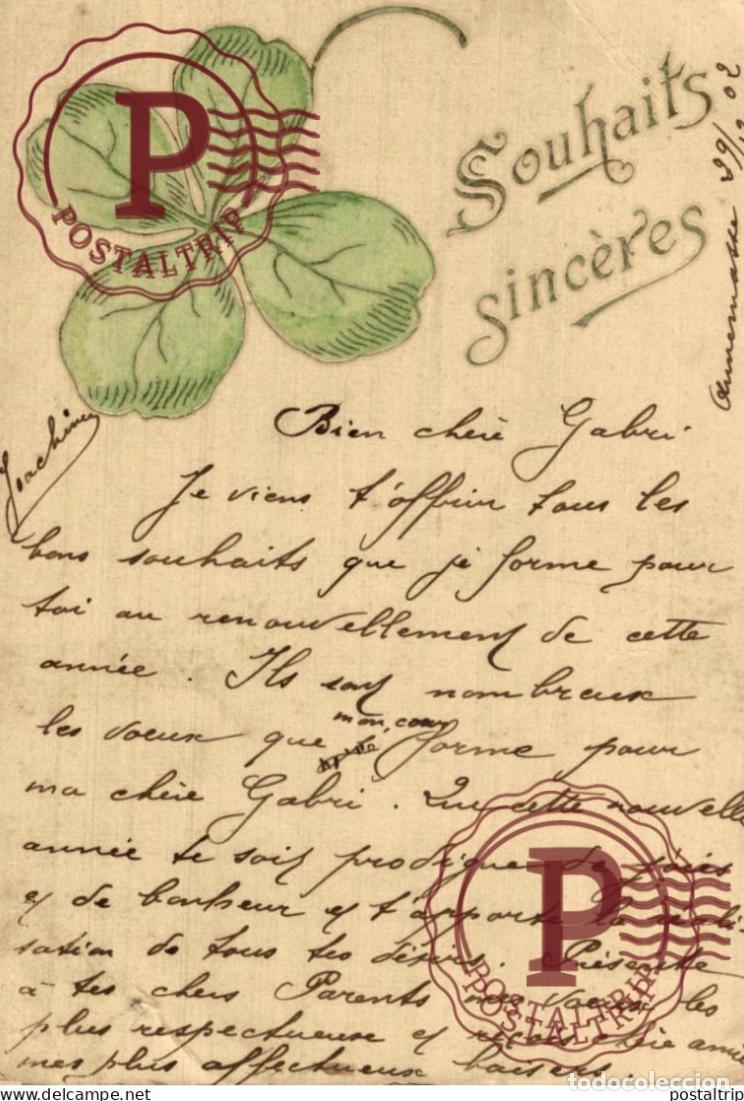 Souhaits
sincères
Annemasse 29/12 02
Joachim
Bien chère Gabri.
Je viens t'offrir tous les
bons souhaits que je forme pour
toi au renouvellement de cette
année. Ils sont nombreux
les voeux que mon cœur forme pour
ma chère Gabri. Que cette nouvelle
année te soit prodigue de joies
et de bonheur et t'apporte la réali-
sation de tous tes désirs. Présente
à tes chers Parents mes voeux les
plus respectueux et reçois chère amie
mes plus affectueux baisers.
POSTALTRIP
POSTALTRIP
todocoleccion
www.delcampe.net
postaltrip